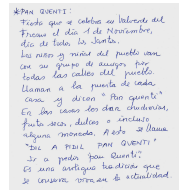 *PAN QUENTI:
Fiesta que se celebra en Valverde del
Fresno el día 1 de Noviembre,
día de todos los Santos.
Los niños y niñas del pueblo van
con su grupo de amigos por
todas las calles del pueblo.
Llaman a la puerta de cada
casa y dicen "Pan quenti"
En las casas les dan chucherías,
fruta secos, dulces o incluso
alguna moneda. A esto se llama
"DIL A PIDIL PAN QUENTI"
Ir a pedir pan Quenti.
Es una antigua tradición que
se conserva viva en la actualidad.